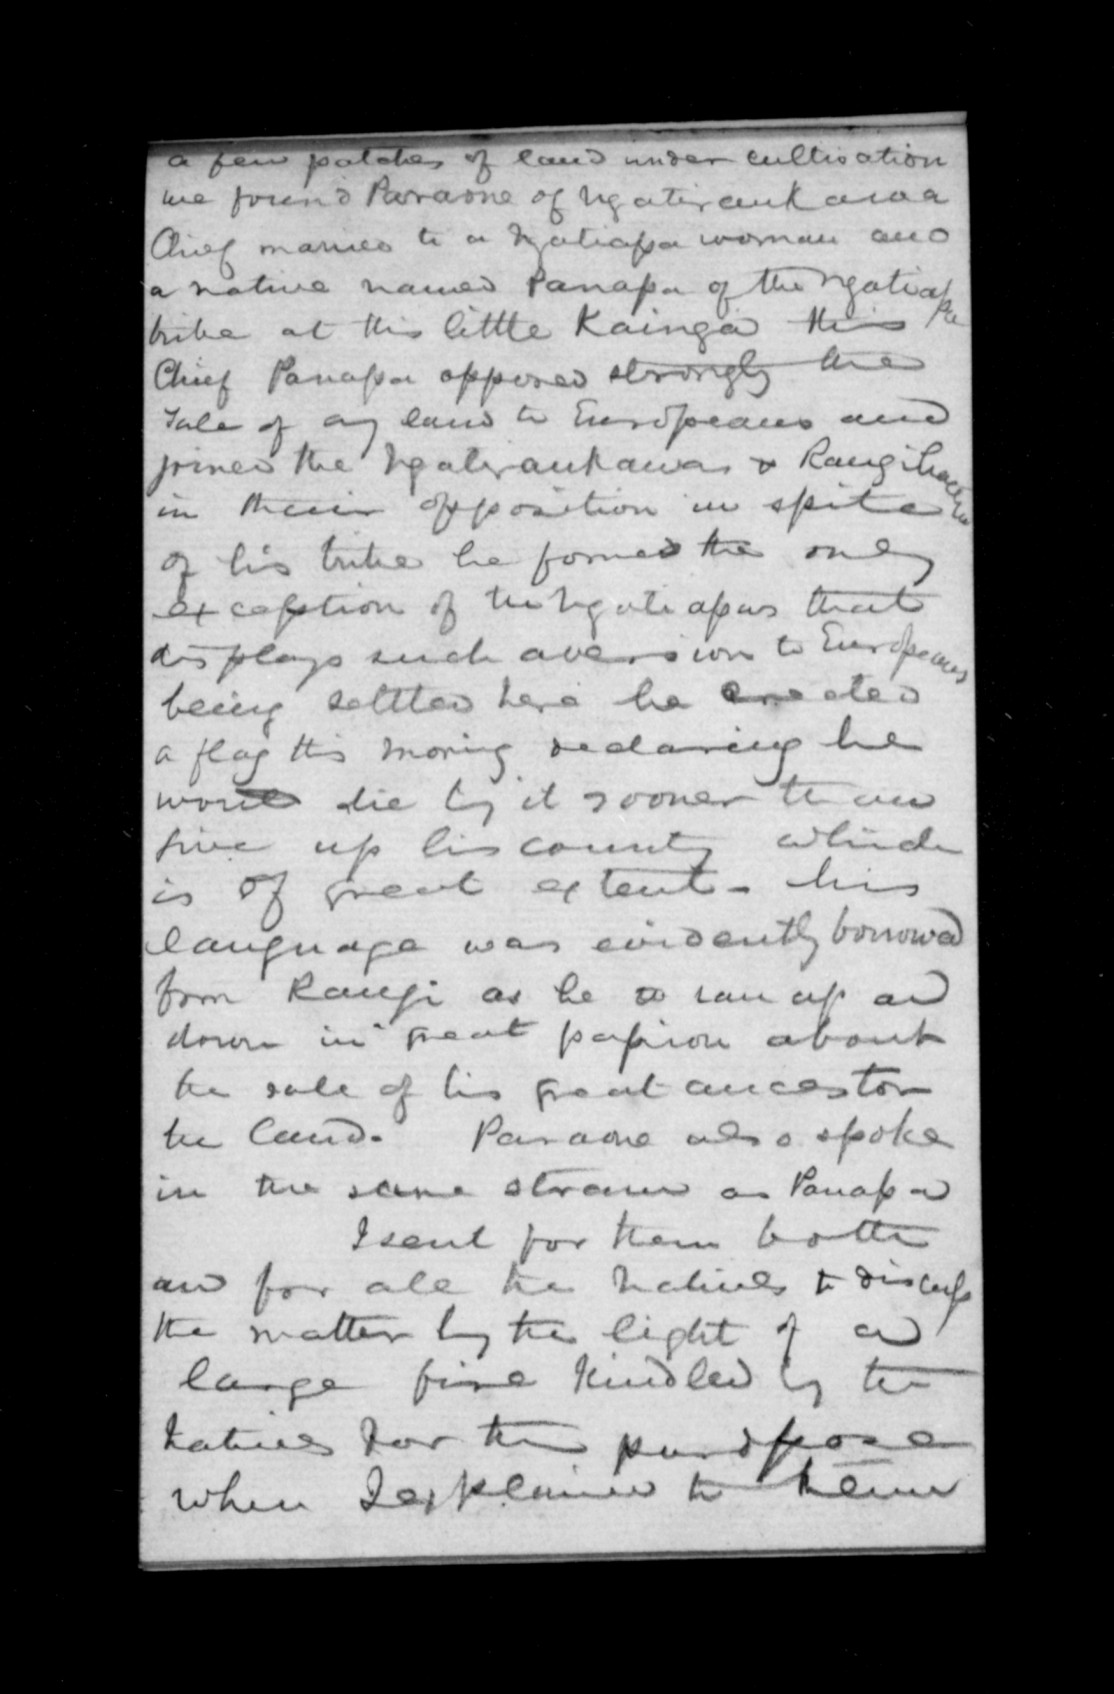 a few patches of land under cultivation
we found Paraone of Ngatiraukawa a
Chief married to a Ngatiapa woman and
a native named Panapa of the Ngatiapa
tribe at this little Kainga this
Chief Panapa opposed strongly the
sale of any land to Europeans and
joined the Ngatiraukawas & Rangihaeata
in their opposition in spite
of his tribe he formed the only
exception of the Ngatiapas that
displays such aversion to Europeans
being settled here he erected
a flag this morning declaring he
would die by it sooner than
give up his country which
is of great extent - his
language was evidently borrowed
from Rangi as he ran up and
down in great passion about
the sale of his great ancestor
the land. Paraone also spoke
in the same strain as Panapa
I sent for them both
and for all the Natives to discuss
the matter by the light of a
large fire kindled by the
Natives for the purpose
when I explained to them